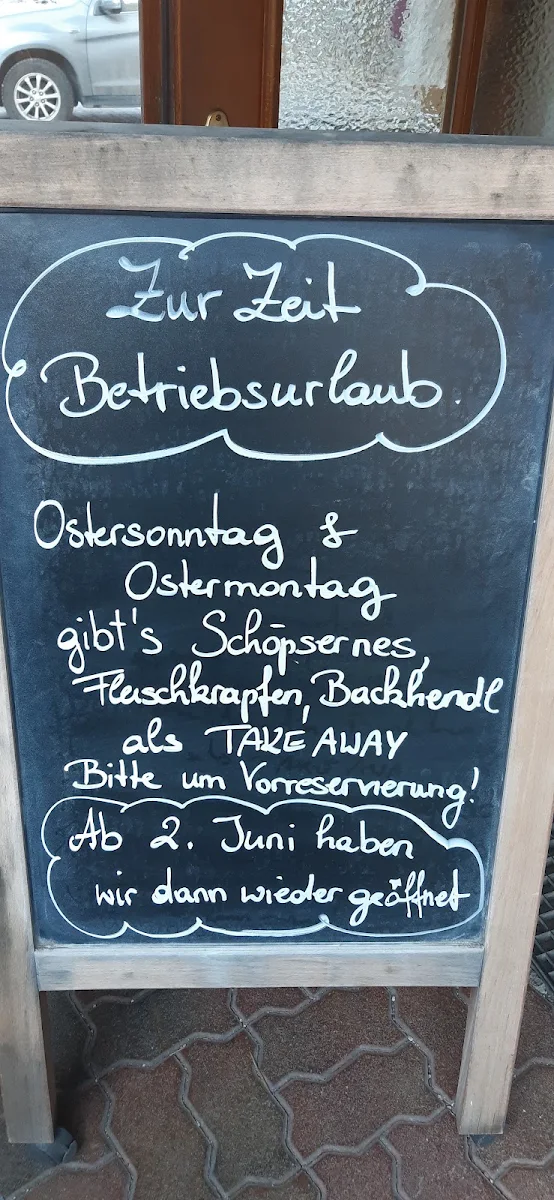 Zur Zeit
Betriebsurlaub.
Ostersonntag &
Ostermontag
gibt's Schöpsernes,
Fleischkrapfen, Backhendl
als TAKE AWAY
Bitte um Vorreservierung!
Ab 2. Juni haben
wir dann wieder geöffnet